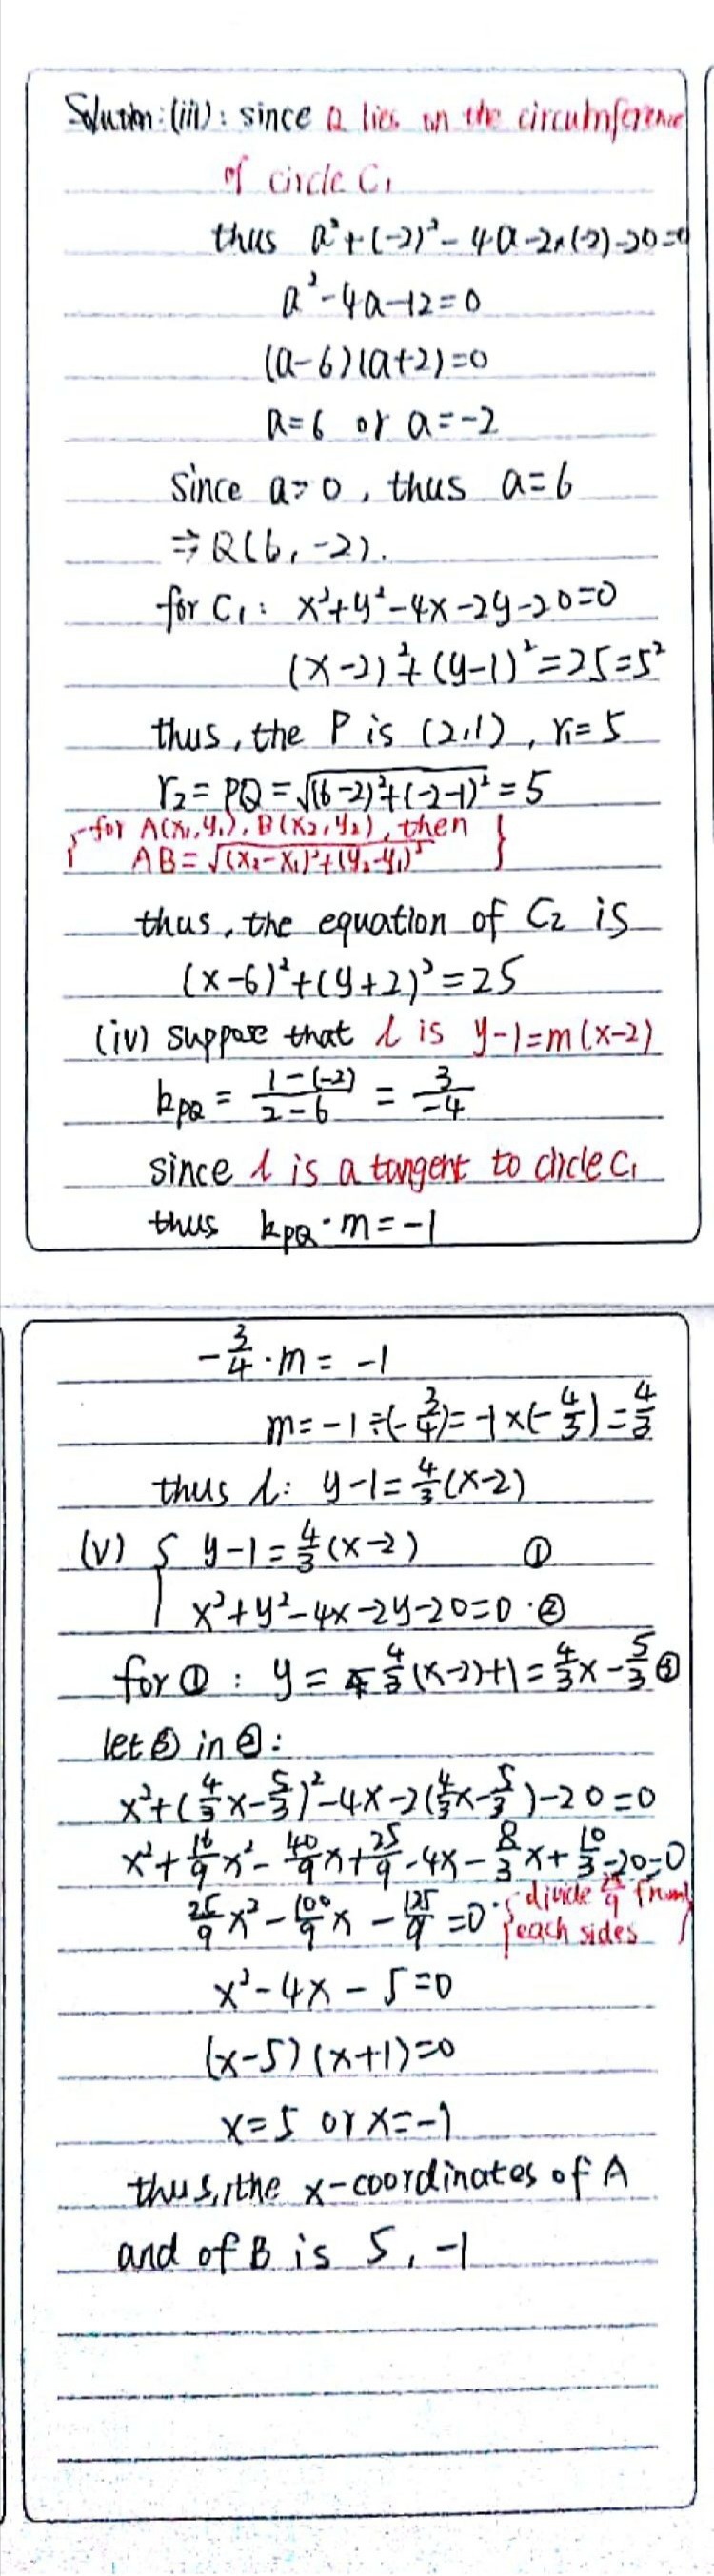 Solution: (iii): since Q lies on the circumference
of circle C₁
thus a²+(-2)²-4a-2×(-2)-20=0
a²-4a-12=0
(a-6)(a+2)=0
a=6 or a=-2
Since a>0, thus a=6
⇒ Q(6,-2).
for C₁: x²+y²-4x-2y-20=0
(x-2)²+(y-1)²=25=5²
thus, the P is (2,1), r₁=5
r₂=PQ=√((6-2)²+(-2-1)²)=5
{for A(x₁,y₁), B(x₂,y₂), then
AB=√((x₂-x₁)²+(y₂-y₁)²)}
thus, the equation of C₂ is
(x-6)²+(y+2)²=25
(iv) suppose that l is y-1=m(x-2)
k_PQ = (1-(-2))/(2-6) = 3/-4
since l is a tangent to circle C₁
thus k_PQ·m=-1
-3/4·m=-1
m=-1÷(-3/4)=-1×(-4/3)=4/3
thus l: y-1=4/3(x-2)
(v) { y-1=4/3(x-2) ①
x²+y²-4x-2y-20=0 ·②
for ①: y= 4/3(x-2)+1=4/3x-5/3 ③
let ③ in ②:
x²+(4/3x-5/3)²-4x-2(4/3x-5/3)-20=0
x²+16/9x²-40/9x+25/9-4x-8/3x+10/3-20=0
25/9x²-100/9x-125/9=0 {divide 25/9 from
each sides}
x²-4x-5=0
(x-5)(x+1)=0
x=5 or x=-1
thus, the x-coordinates of A
and of B is 5, -1